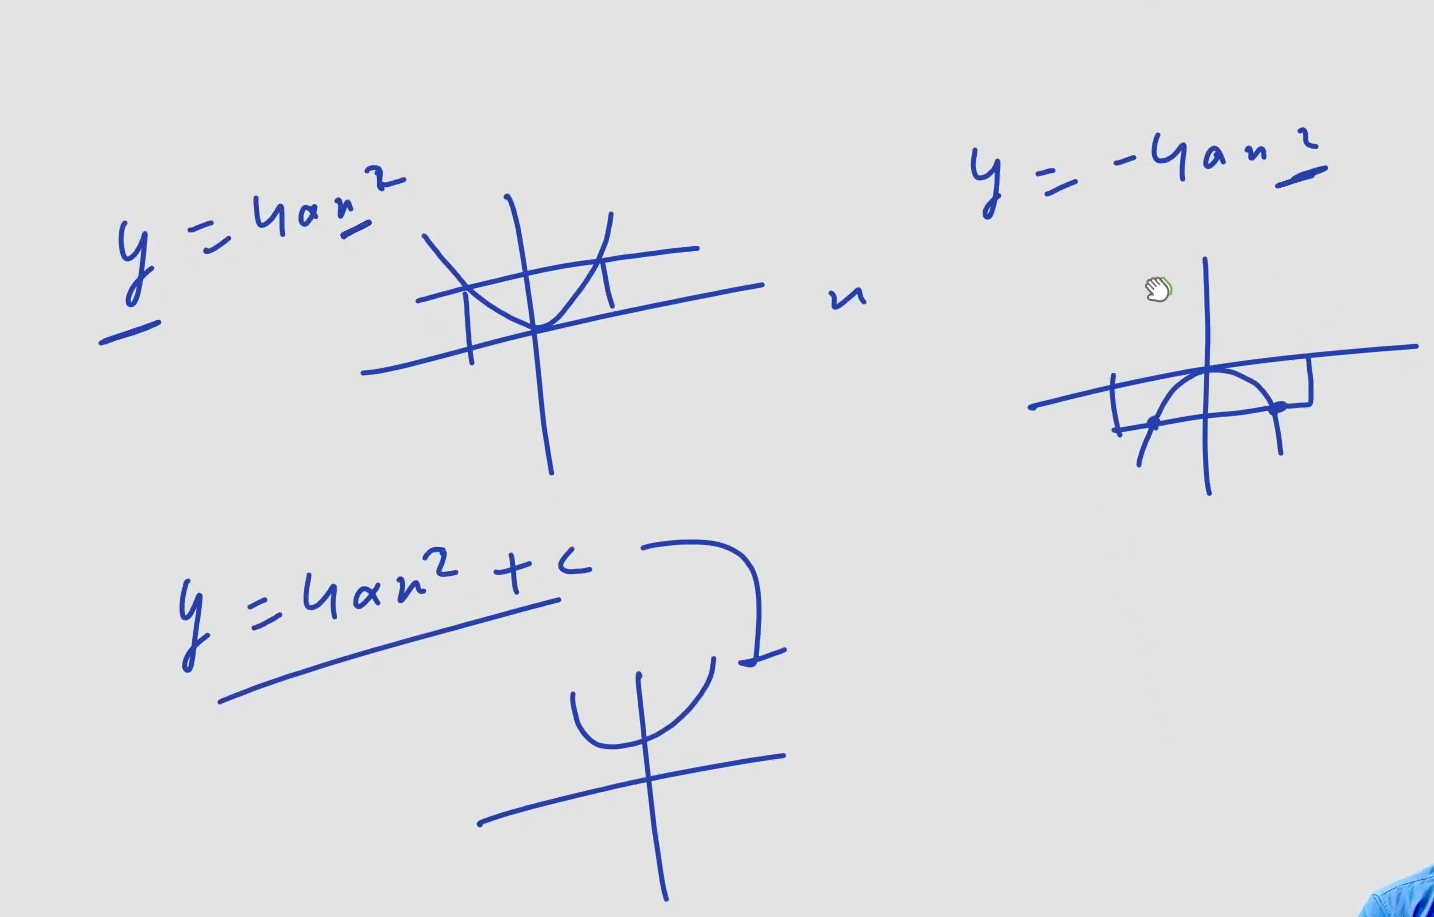 y = 4ax²
y = -4ax²
x
y = 4ax² + c